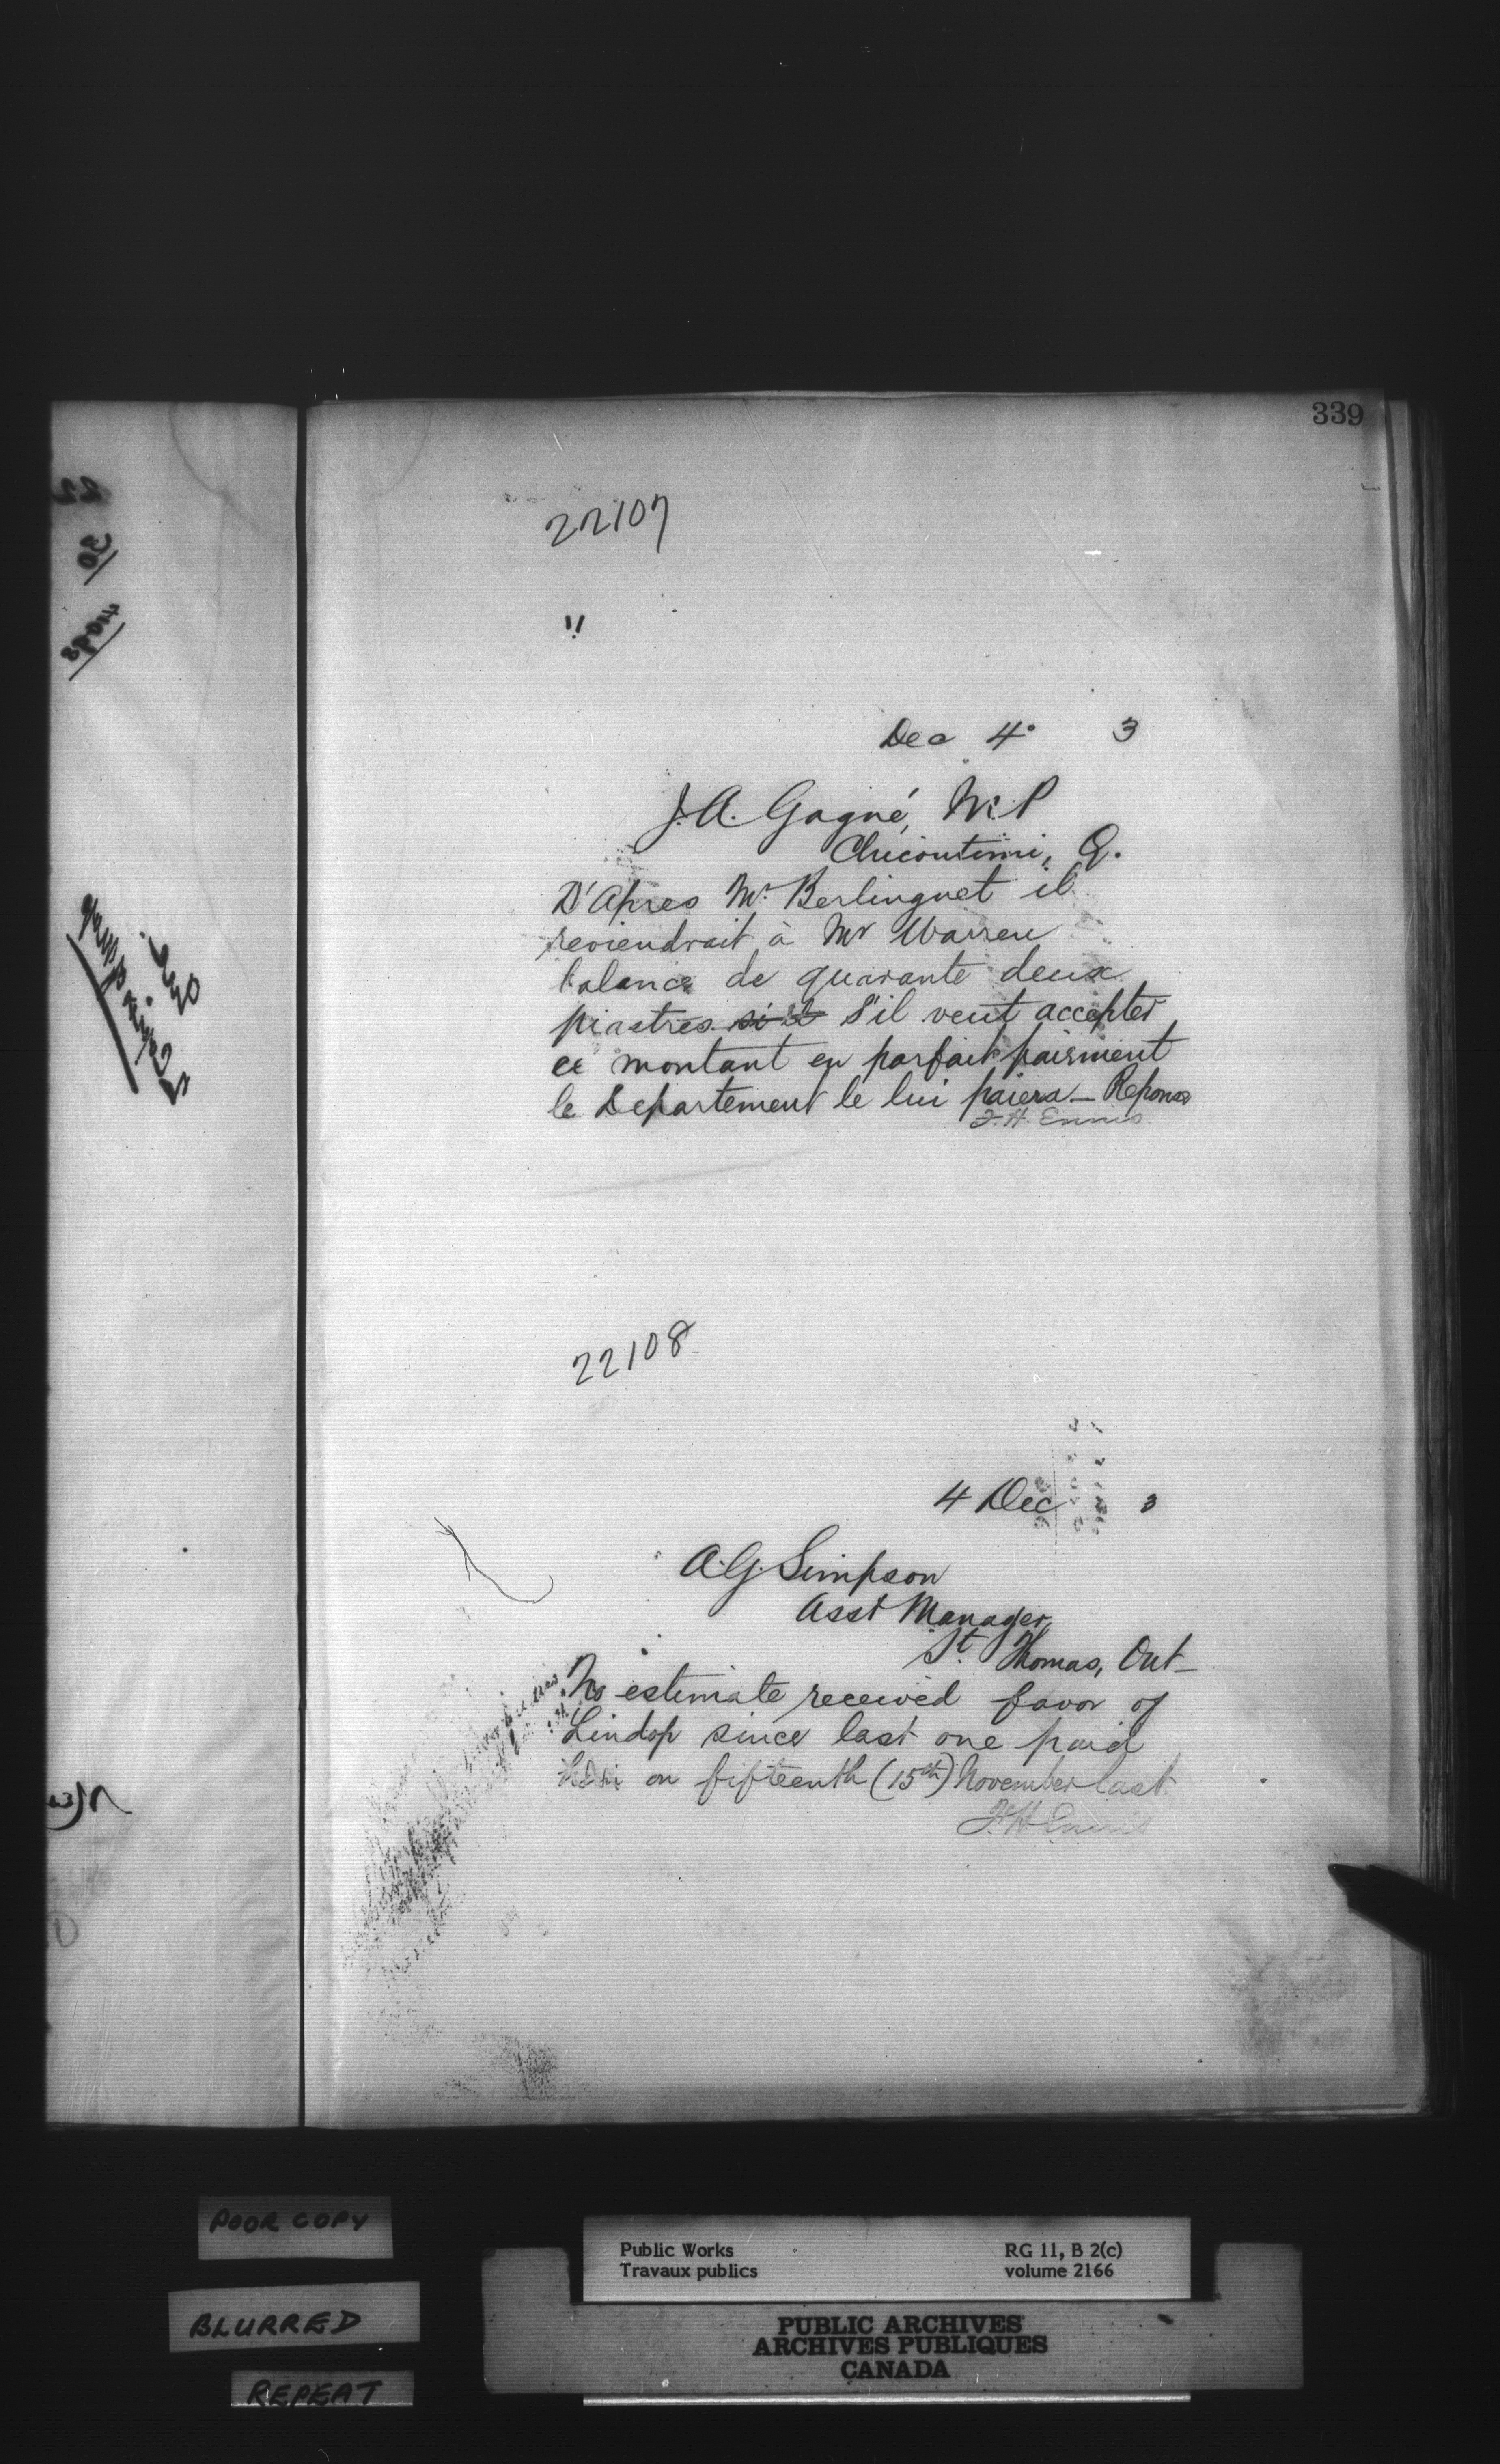 339
22107
"
Dec 4 3
J. A. Gagné, M.P
Chicoutimi, Q.
D'Apres Mr Berlinguet il
reviendrait à Mr Warren
balance de quarante deux
piastres si il S'il veut accepter
ce montant en parfait paiement
le Departement le lui paiera — Reponse
F. H. Ennis
22108
4 Dec 3
A. G. Simpson
Asst Manager,
St. Thomas, Ont—
No estimate received favor of
Lindop since last one paid
him on fifteenth (15th) November last
F. H. Ennis
POOR COPY
BLURRED
REPEAT
Public Works
Travaux publics
RG 11, B 2(c)
volume 2166
PUBLIC ARCHIVES
ARCHIVES PUBLIQUES
CANADA